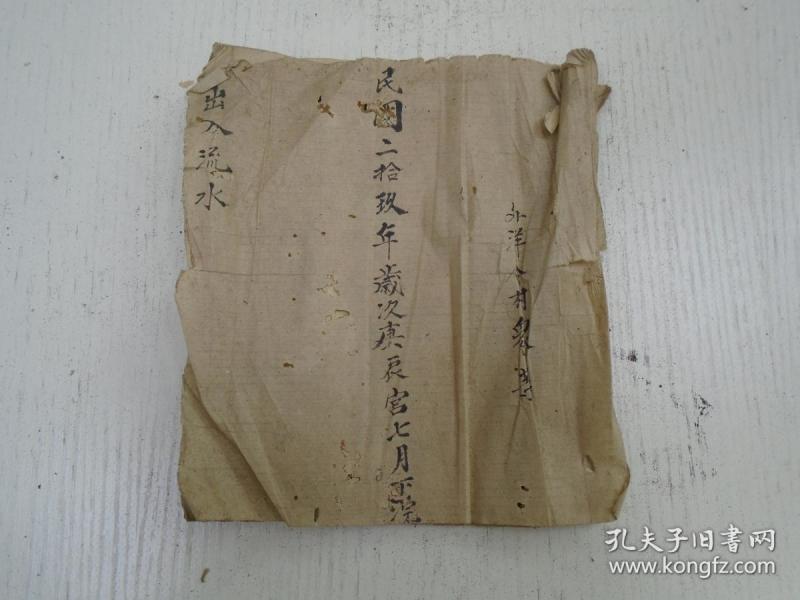 外洋
村眾
民國二拾玖年歲次庚辰宮七月下浣
出入流水
孔夫子旧书网
www.kongfz.com